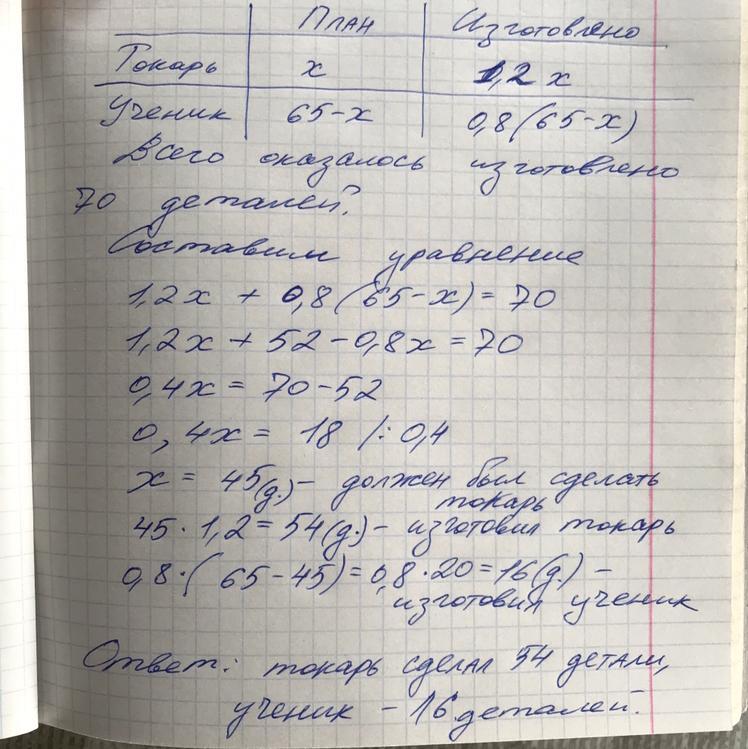 План Изготовлено
Токарь x 1,2x
Ученик 65-x 0,8(65-x)
Всего оказалось изготовлено
70 деталей.
Составим уравнение
1,2x + 0,8(65-x) = 70
1,2x + 52 - 0,8x = 70
0,4x = 70 - 52
0,4x = 18 /: 0,4
x = 45(д.) - должен был сделать
токарь
45 · 1,2 = 54(д.) - изготовил токарь
0,8 · (65-45) = 0,8 · 20 = 16(д.) -
изготовил ученик
Ответ: токарь сделал 54 детали,
ученик - 16 деталей.